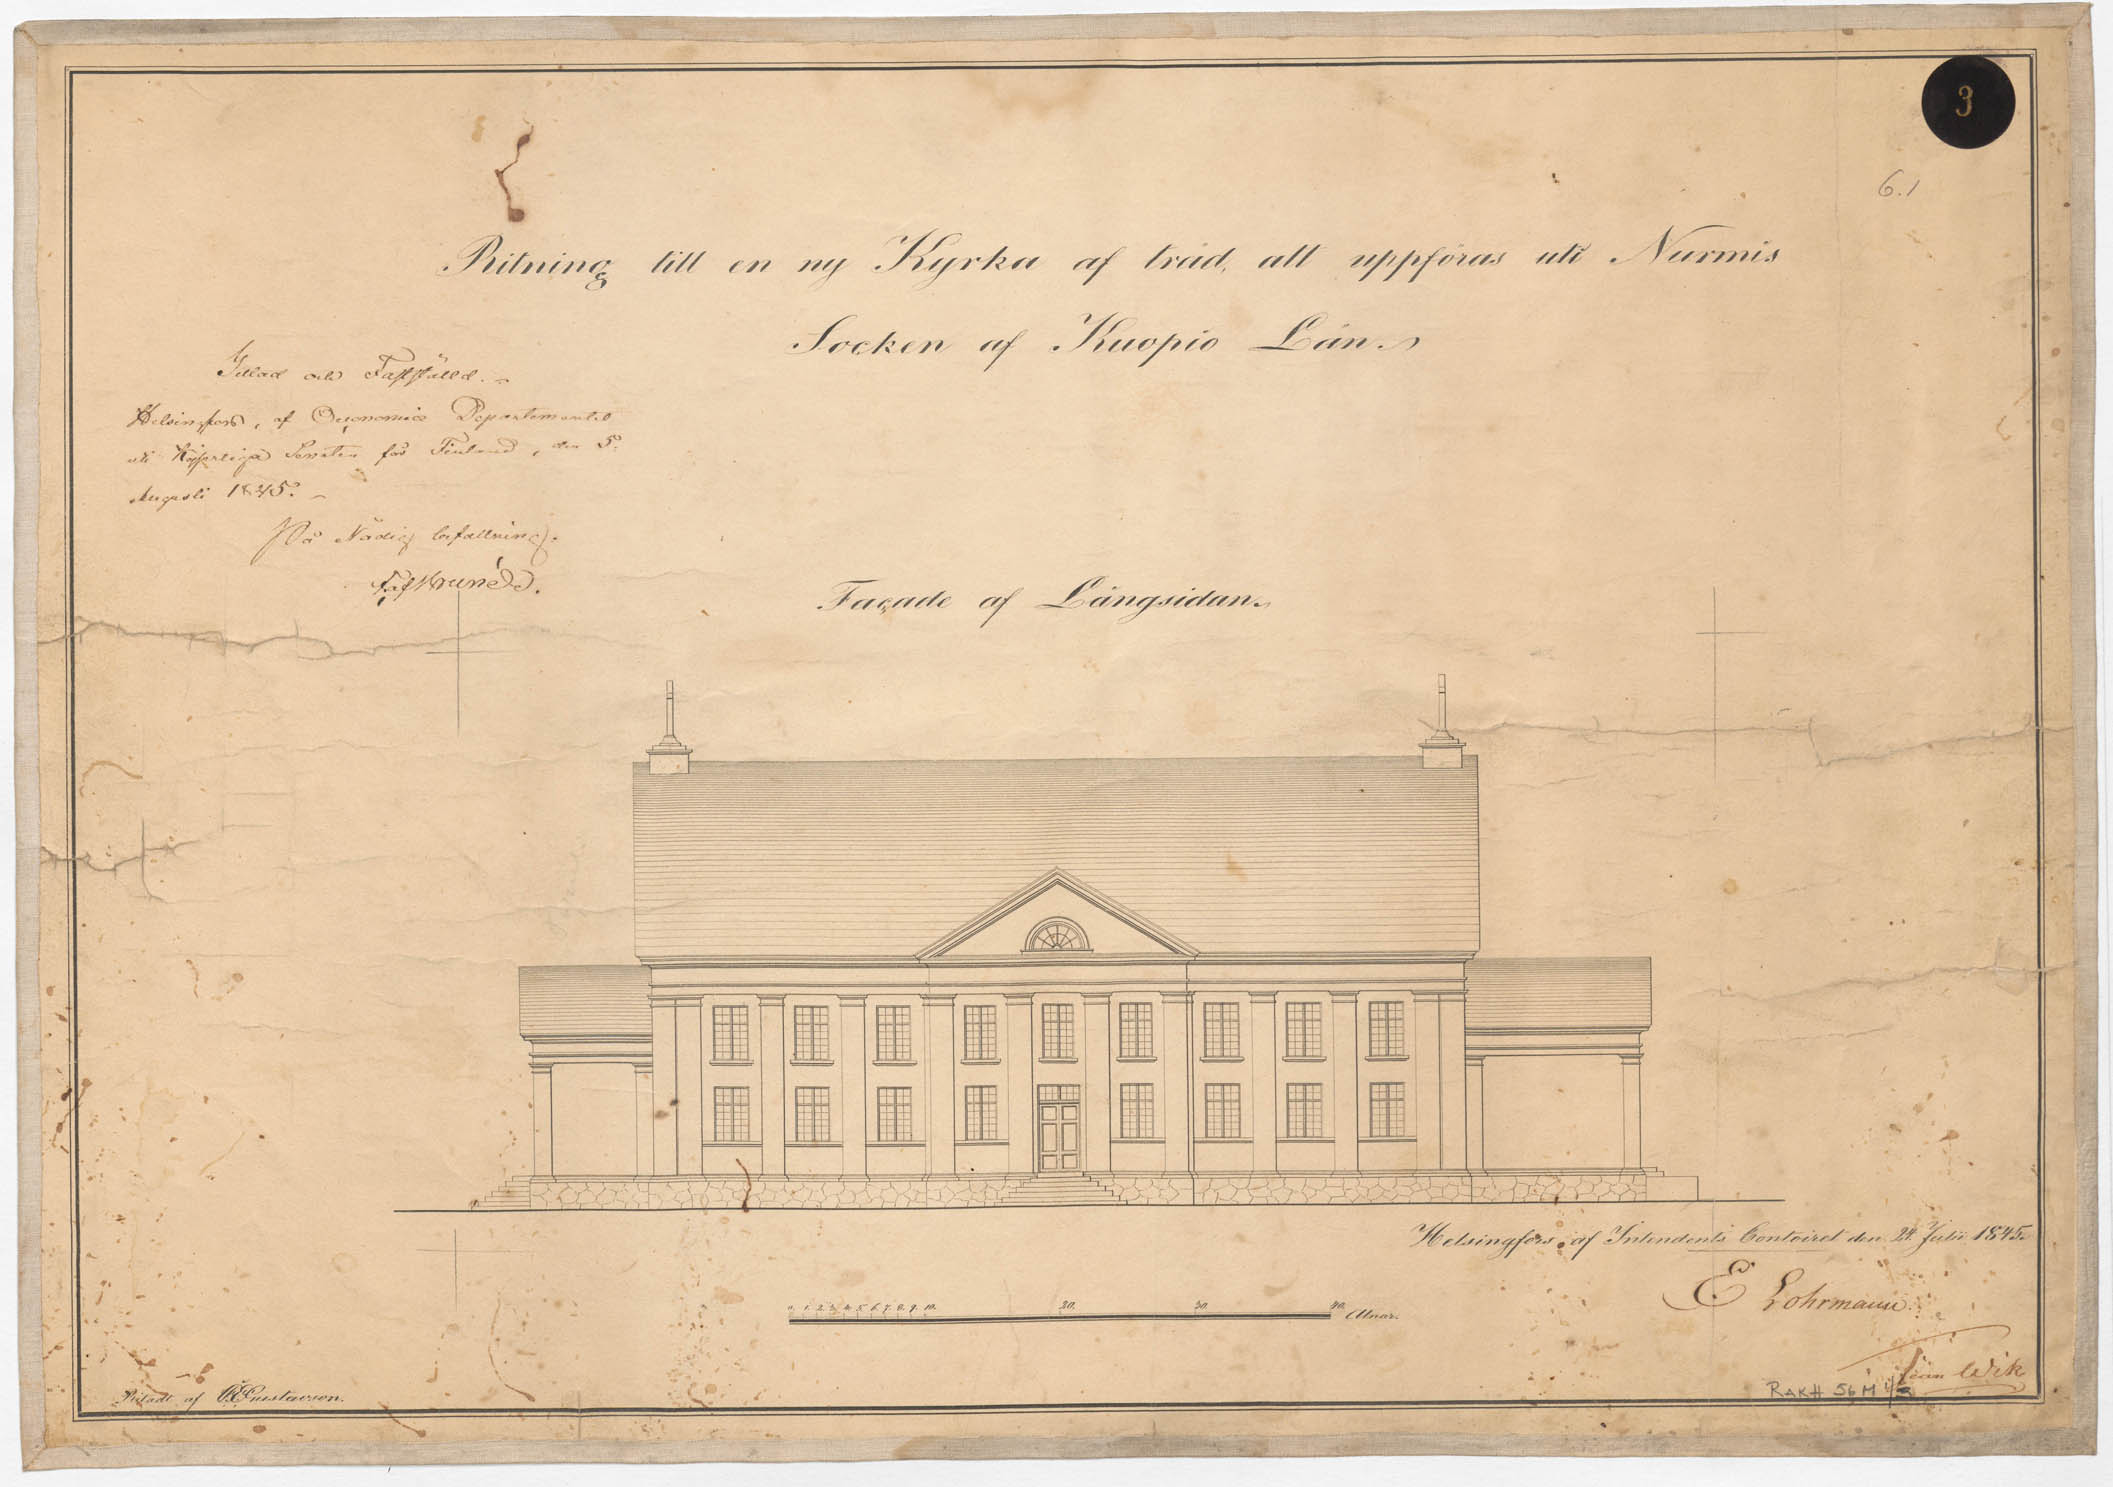 3
6.1
Ritning till en ny Kyrka af träd, att uppföras uti Nurmis
Socken af Kuopio Län.
Gillad och Fastställd.
Helsingfors, af Oeconomie Departementet
uti Kejserliga Senaten för Finland, den 5
Augusti 1845.
På Nådig befallning.
Façade af Långsidan.
Helsingfors, af Intendents Contoiret den 24 Julii 1845.
E Lohrmann.
0. 1. 2. 3. 4. 5. 6. 7. 8. 9. 10. 20. 30. 40. Alnar.
Jean Wik
Ritadt af Gustavson.
RAKH 56 M